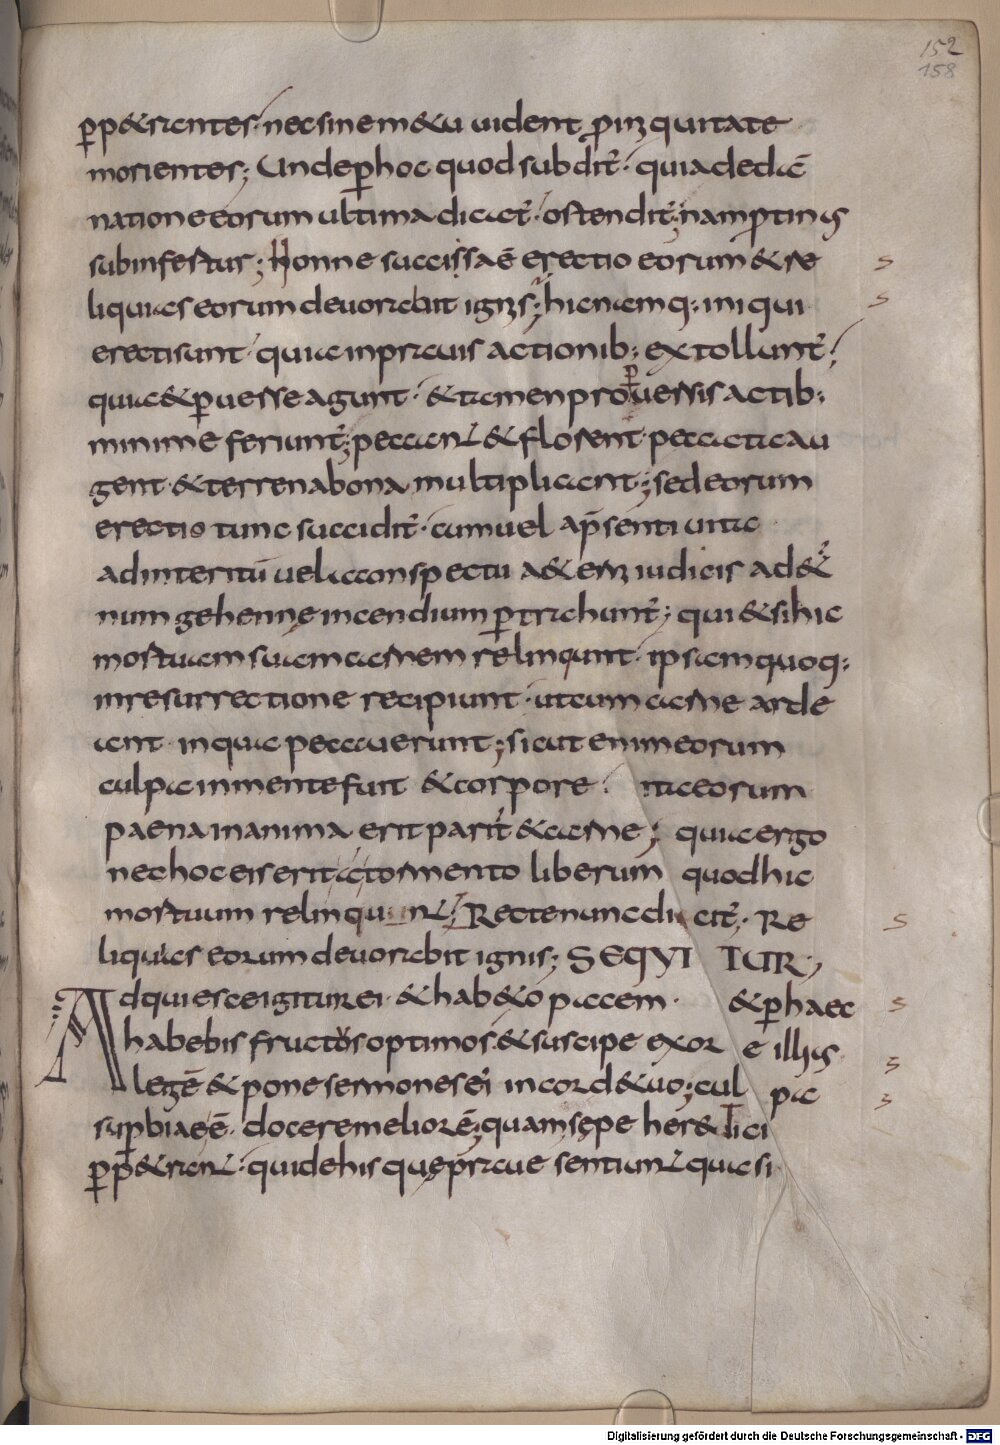 152
158
p̱p&rantes· nec sine m&u uident ꝓ iniquitate
morientes; Unde ꝑ hoc quod subdit̄· quia de dā
natione eorum ultima dicat̄· ostendit̄; nam ꝓtinus
subinfertur; Nonne succissa ē erectio eorum & re
liquias eorum deuorabit ignis; hic namq· iniqui
erecti sunt· quia in prauis actionib; extollunt̄;
quia & ꝑuerse agunt· & tamen pro ꝑuersis actib;
minime feriunt̄; peccant & florent· peccata au
gent· & terrena bona multiplicant; sed eorum
erectio tunc succidit̄· cum uel a p̄senti uita
ad interitū uel a conspectu a&erni iudicis ad &ͬ
num gehenne incendium ꝑtrahunt̄; qui & si hic
mortuam suam carnem relinqunt· ipsam quoq;
in resurrectione recipiunt· ut cum carne arde
ant in qua peccauerunt; sicut enim eorum
culpa in mente fuit & corpore· ita eorum
paena in anima erit parit̄ & carne; quia ergo
nec hoc eis erit a tormento liberum quod hic
mortuum relinquunt; Recte nunc dicit̄· Re
liquias eorum deuorabit ignis; SEQVITUR;
Adquiesce igitur ei· & hab&o pacem· & ꝑ haec
habebis fructos optimos· & suscipe ex ore illius
legē & pone sermones ei in cord& uo; culpa
suꝑbiae ē· docere meliorē; quam sepe her&ici
p̱p&rant· qui de his quę praue sentiunt quasi
Digitalisierung gefördert durch die Deutsche Forschungsgemeinschaft - DFG